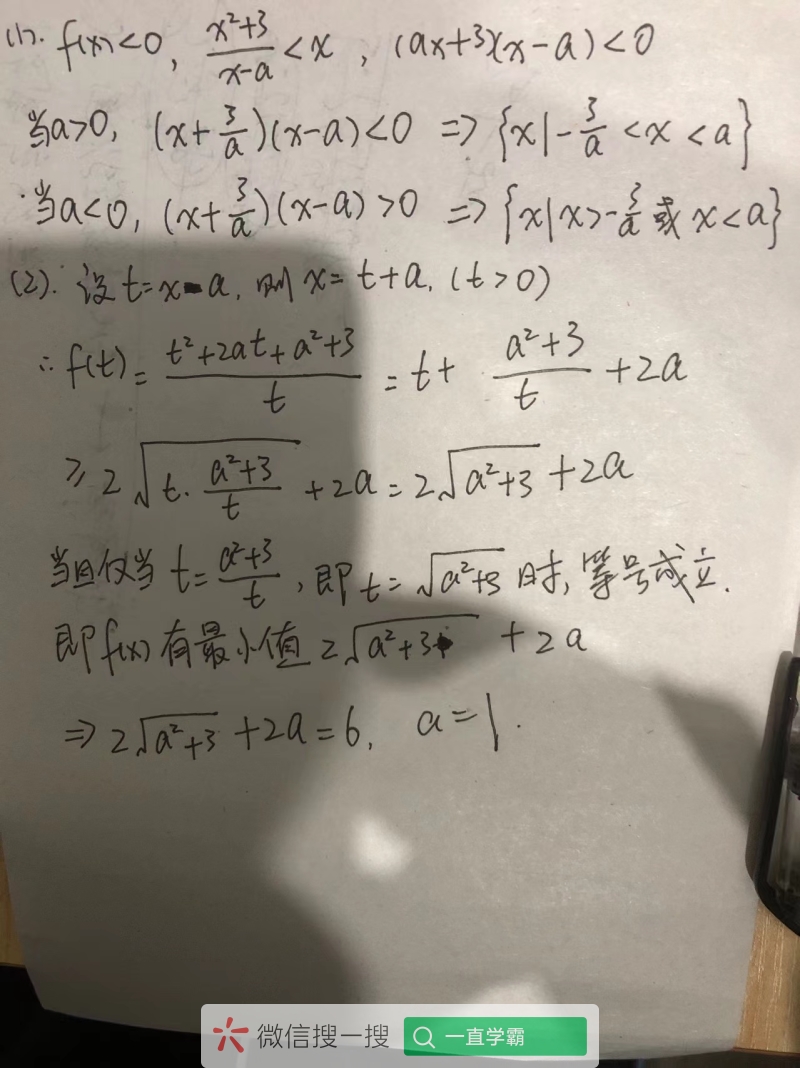 (1). f(x)<0, \frac{x²+3}{x-a}<x, (ax+3)(x-a)<0
当a>0, (x+\frac{3}{a})(x-a)<0 => {x|-\frac{3}{a}<x<a}
当a<0, (x+\frac{3}{a})(x-a)>0 => {x|x>-\frac{3}{a}或x<a}
(2). 设t=x-a, 则x=t+a, (t>0)
∴f(t)=\frac{t²+2at+a²+3}{t}=t+\frac{a²+3}{t}+2a
≥2\sqrt{t·\frac{a²+3}{t}}+2a=2\sqrt{a²+3}+2a
当且仅当t=\frac{a²+3}{t}, 即t=\sqrt{a²+3}时, 等号成立.
即f(x)有最小值2\sqrt{a²+3}+2a
=>2\sqrt{a²+3}+2a=6, a=1.
微信搜一搜 一直学霸